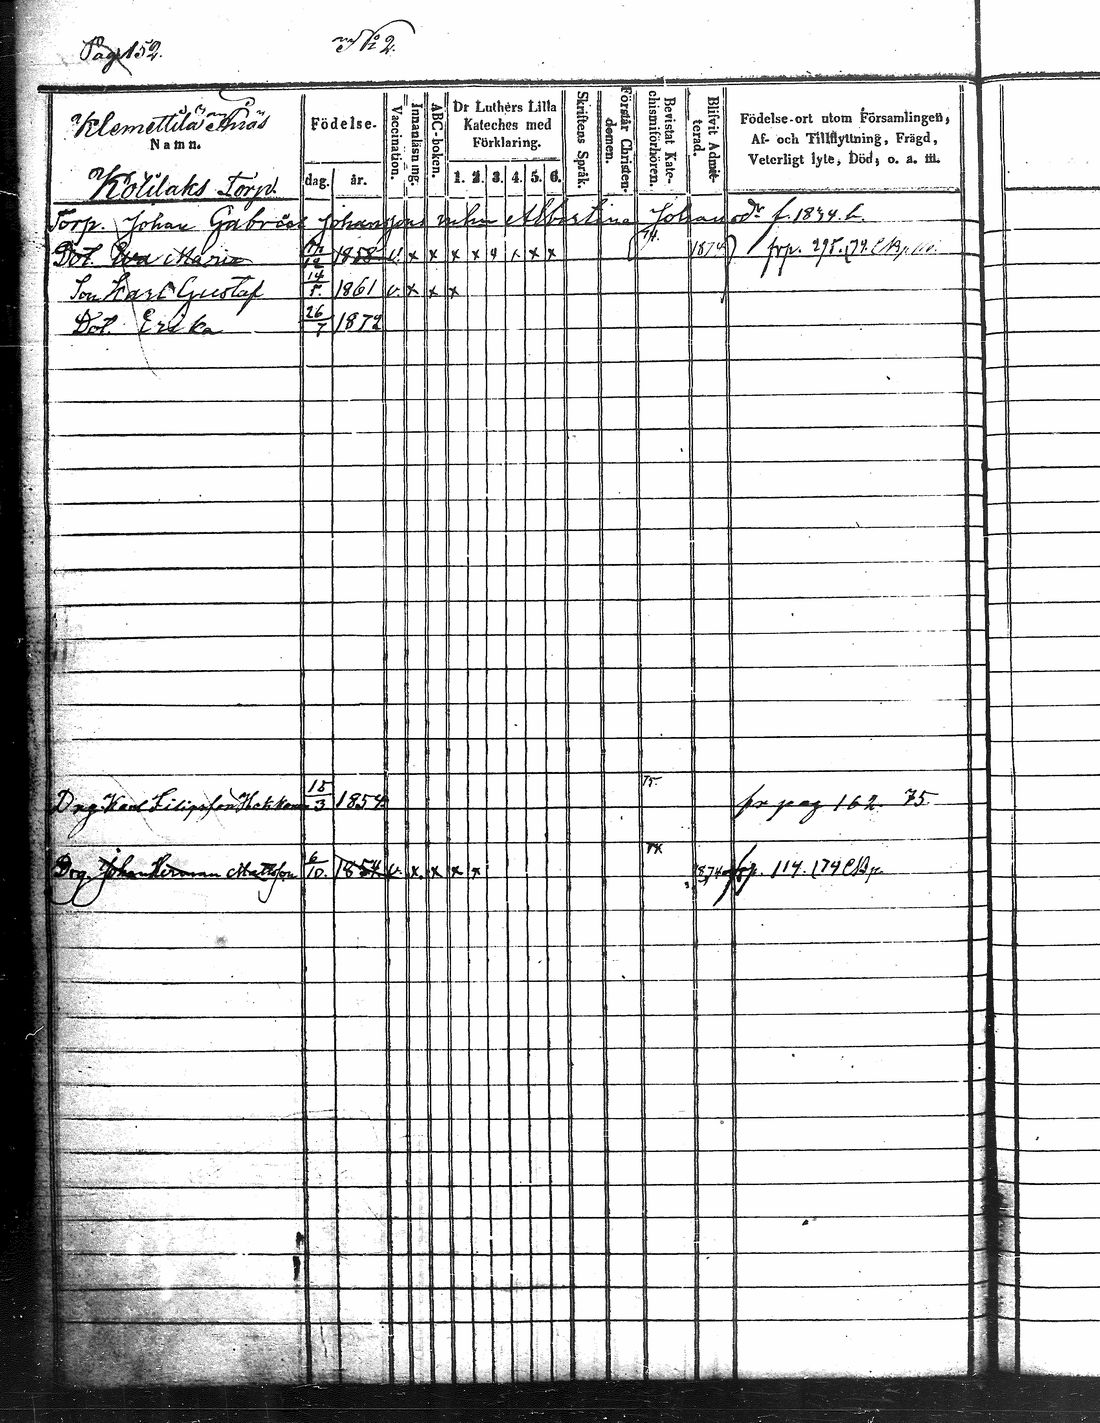 Pag 152.
No 2.
Klemettilä Ånäs
Namn.
Kolilaks Torp.
Födelse.
dag.
år.
Vaccination.
Innanläsning.
ABC-boken.
Dr Luthers Lilla
Kateches med
Förklaring.
1. 2. 3. 4. 5. 6.
Skriftens Språk.
Förstår Christen-
domen.
Bevistat Kate-
chismiförhören.
Blifvit Admit-
terad.
Födelse-ort utom Församlingen,
Af- och Tillflyttning, Frägd,
Veterligt lyte, Död, o. a. m.
Torp. Johan Gabriel Johansons Albertina Johansdr f. 1834
Dot. Eva Maria 12 1858 v. x x x x x x x 74. 1874 frp. 295.
Son Karl Gustaf 14/5 1861 v. x x x
Dot. Erika 26/7 1872
Drg. Karl Filipsson 15/3 1854 75. fr pag 162. 75
Drg. Johan Herman Mattsson 6/10 1854 v. x x x x 1874 frp. 114.